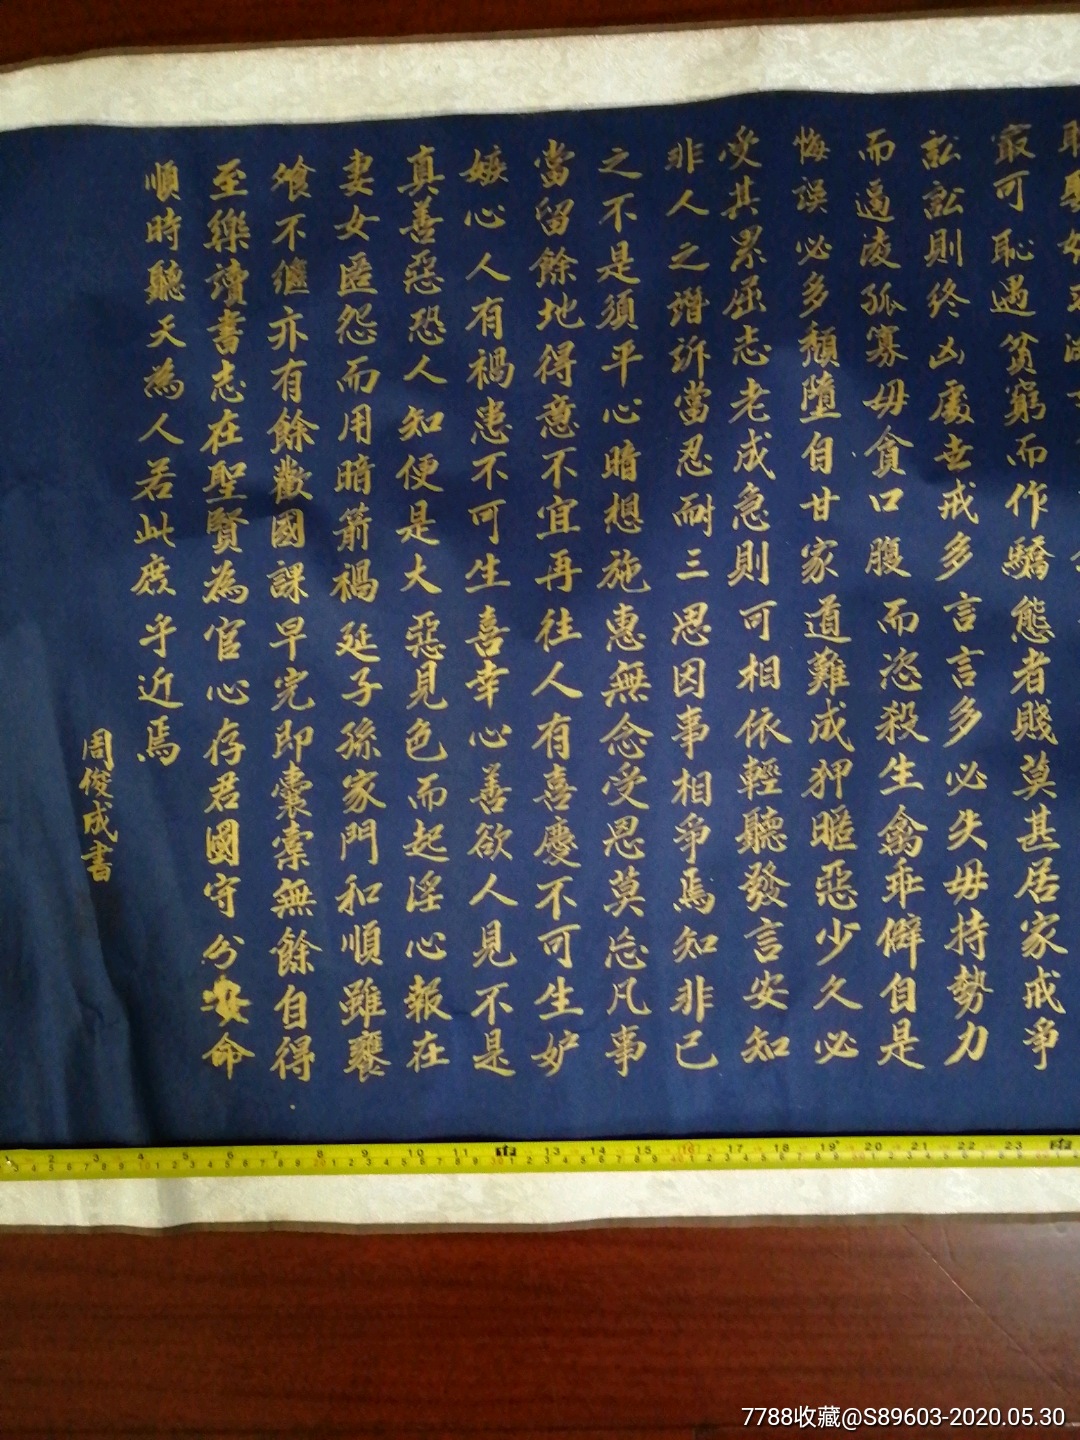 最可恥遇貧窮而作驕態者賤莫甚居家戒爭
訟訟則終凶處世戒多言言多必失毋持勢力
而逼凌孤寡毋貪口腹而恣殺生禽乖僻自是
悔誤必多頹墮自甘家道難成狎暱惡少久必
受其累屈志老成急則可相依輕聽發言安知
非人之譖訴當忍耐三思因事相爭焉知非己
之不是須平心暗想施惠無念受恩莫忘凡事
當留餘地得意不宜再往人有喜慶不可生妒
嫉心人有禍患不可生喜幸心善欲人見不是
真善惡恐人知便是大惡見色而起淫心報在
妻女匿怨而用暗箭禍延子孫家門和順雖饔
飧不繼亦有餘歡國課早完即囊橐無餘自得
至樂讀書志在聖賢為官心存君國守分安命
順時聽天為人若此庶乎近焉
周俊成書
7788收藏@S89603-2020.05.30